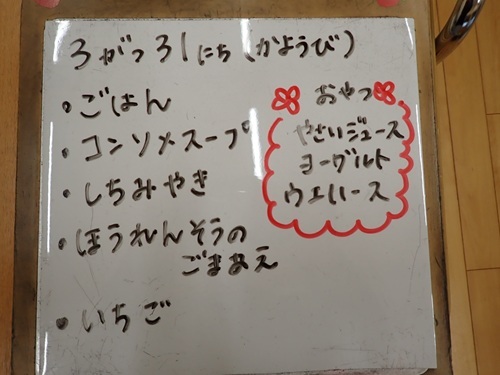 3がつ31にち(かようび)
・ごはん
・コンソメスープ
・しちみやき
・ほうれんそうの
ごまあえ
・いちご
おやつ
やさいジュース
ヨーグルト
ウエハース